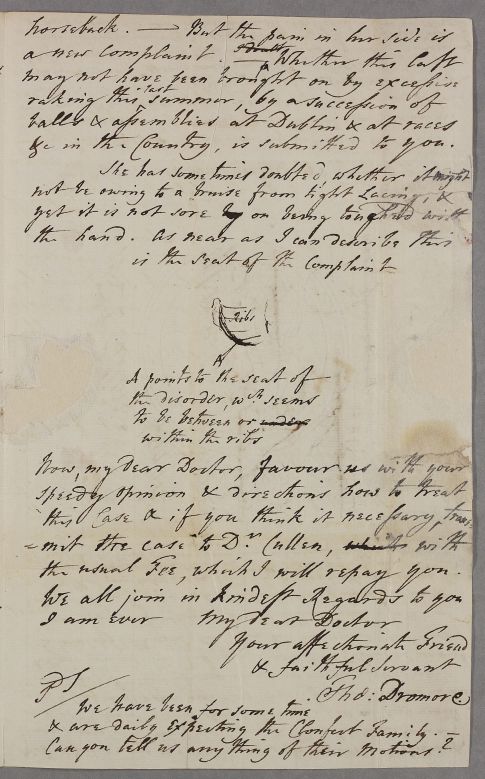 horseback. — But the pain in her side is
a new complaint. Whether this last
may not have been brought on by excessive
raking this last Summer, by a succession of
balls & assemblies at Dublin & at races
&c in the Country, is submitted to you.
She has sometimes doubted, whether it might
not be owing to a bruise from tight Lacing, &
yet it is not sore on being touched with
the hand. As near as I can describe this
is the seat of the Complaint
Ribs
A
A points to the seat of
the disorder, wch. seems
to be between or under
within the ribs
Now, my dear Doctor, favour us with your
speedy opinion & directions how to treat
this Case & if you think it necessary, trans
=mit the case to Dr. Cullen, with
the usual Fee, which I will repay you.
We all join in kindest Regards to you
I am ever my dear Doctor
Your affectionate Friend
& faithful servant
Tho: Dromore
PS/
We have been for some time
& are daily expecting the Clonfert Family. –
Can you tell us any thing of their Motions?